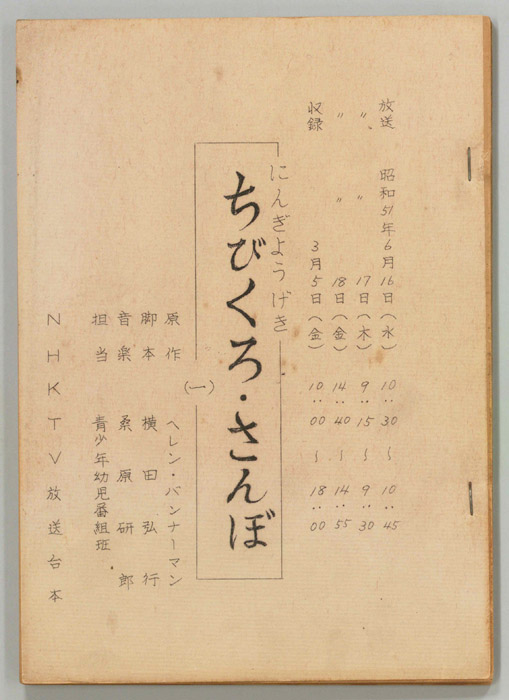 放送 昭和51年6月16日（水） 10：30～10：45
〃 〃 17日（木） 9：15～9：30
〃 〃 18日（金） 14：40～14：55
収録 3月5日（金） 10：00～18：00
にんぎようげき
ちびくろ・さんぼ
（一）
原作 ヘレン・バンナーマン
脚本 横田弘行
音楽 桑原研郎
担当 青少年幼児番組班
NHKTV放送台本